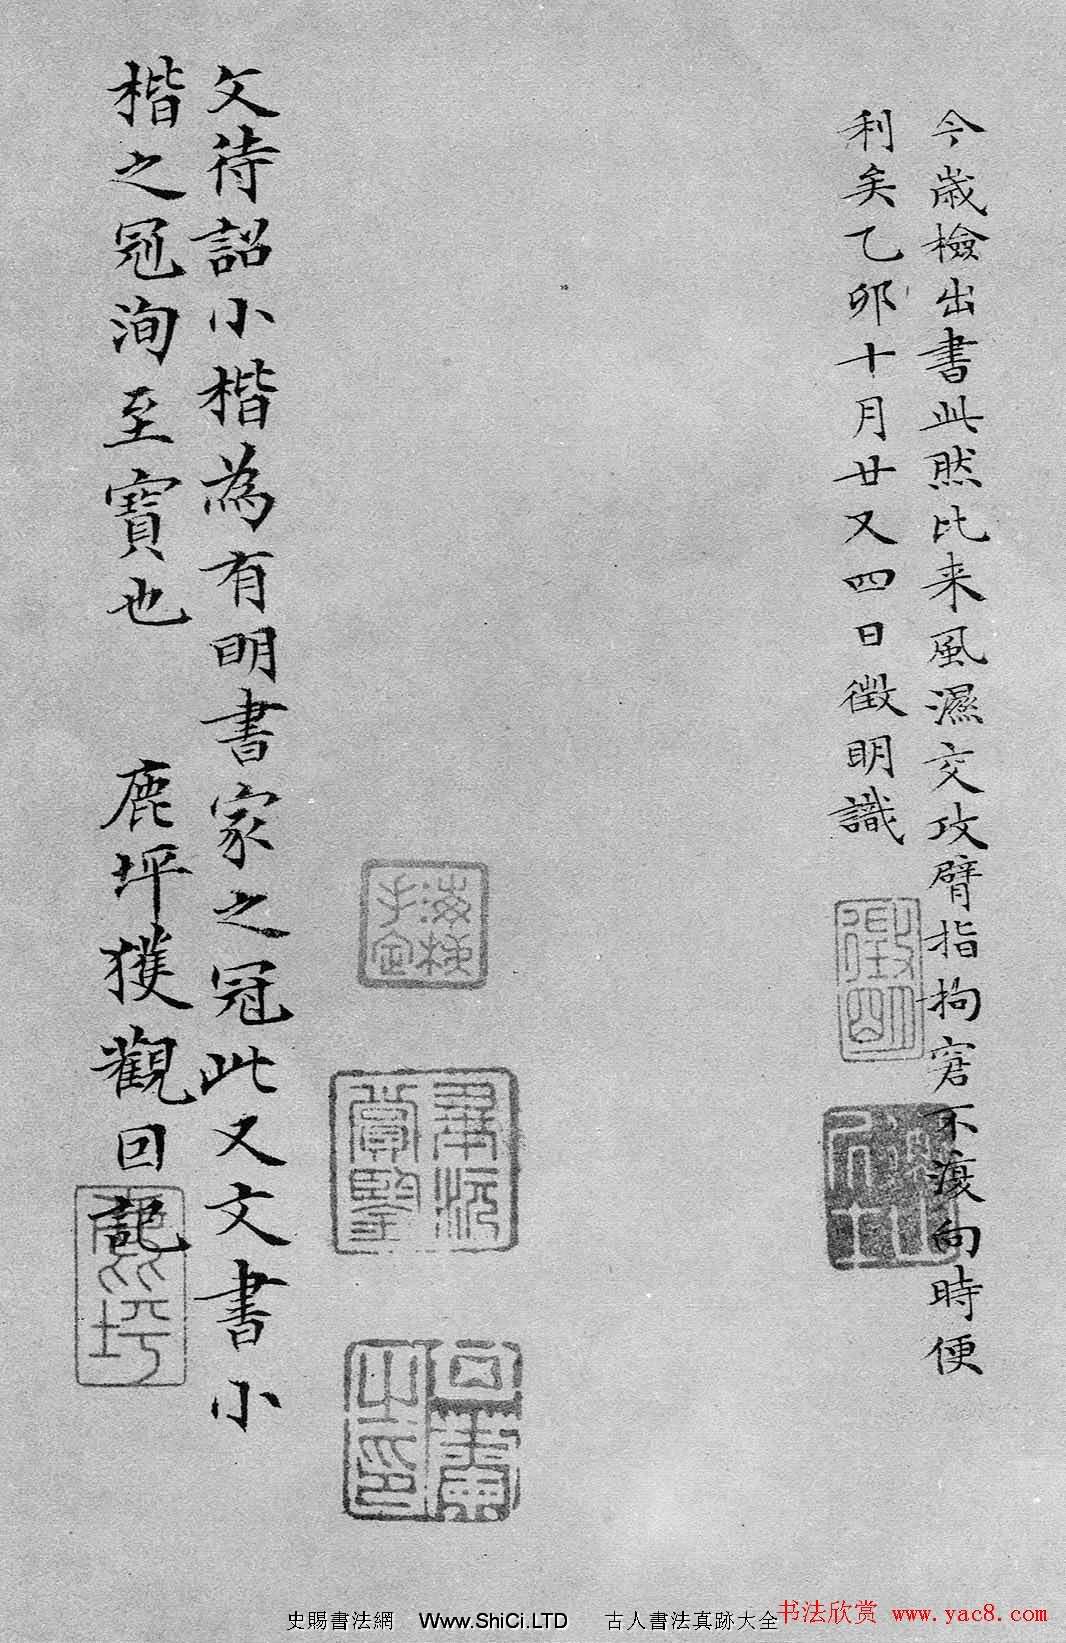 今歲檢出書此然比来風濕交攻臂指拘窘不復向時便
利矣乙卯十月廿又四日徵明識
徵明
文待詔小楷為有明書家之冠此又文書小
楷之冠洵至寶也　鹿坪獲觀回記
鹿坪
畢沅
賞鑒
之印
史賜書法網　Www.ShiCi.LTD　古人書法真跡大全
书法欣赏 www.yac8.com